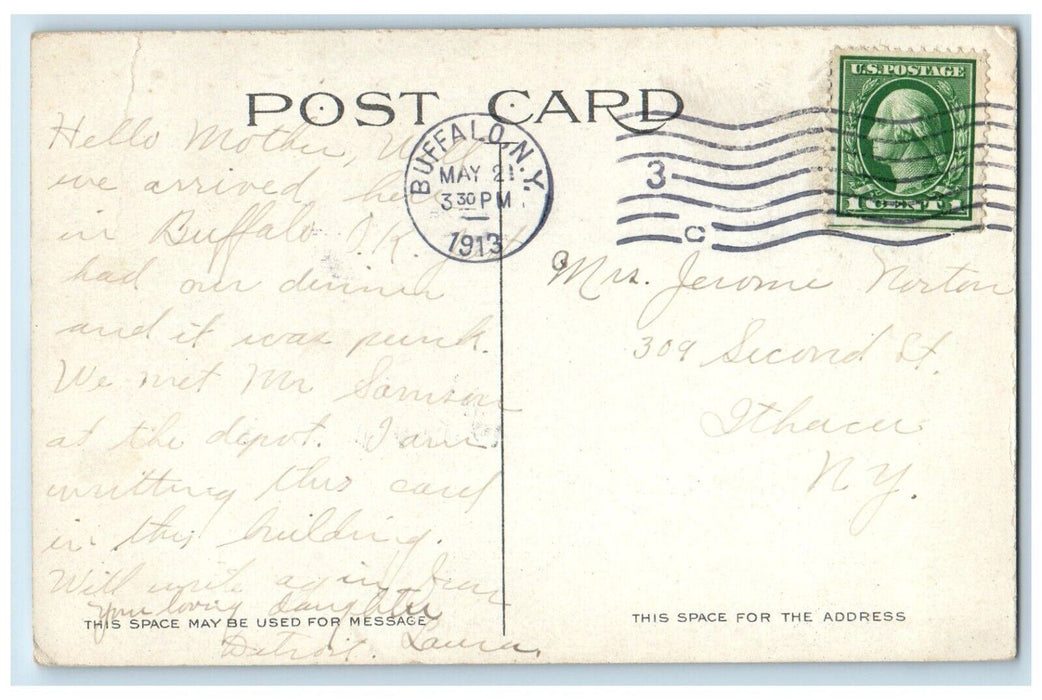 POST CARD
BUFFALO, N.Y.
MAY 21
3 30 PM
1913
3
C
U.S. POSTAGE
1 CENT 1
Hello Mother, Well
we arrived here
in Buffalo O.K. Just
had our dinner
and it was punk.
We met Mr Samson
at the depot. I am
writting this card
in this building.
Will write again from
Detroit.
your loving daughter
Laura.
THIS SPACE MAY BE USED FOR MESSAGE
Mrs. Jerome Norton
309 Second St.
Ithaca
N.Y.
THIS SPACE FOR THE ADDRESS